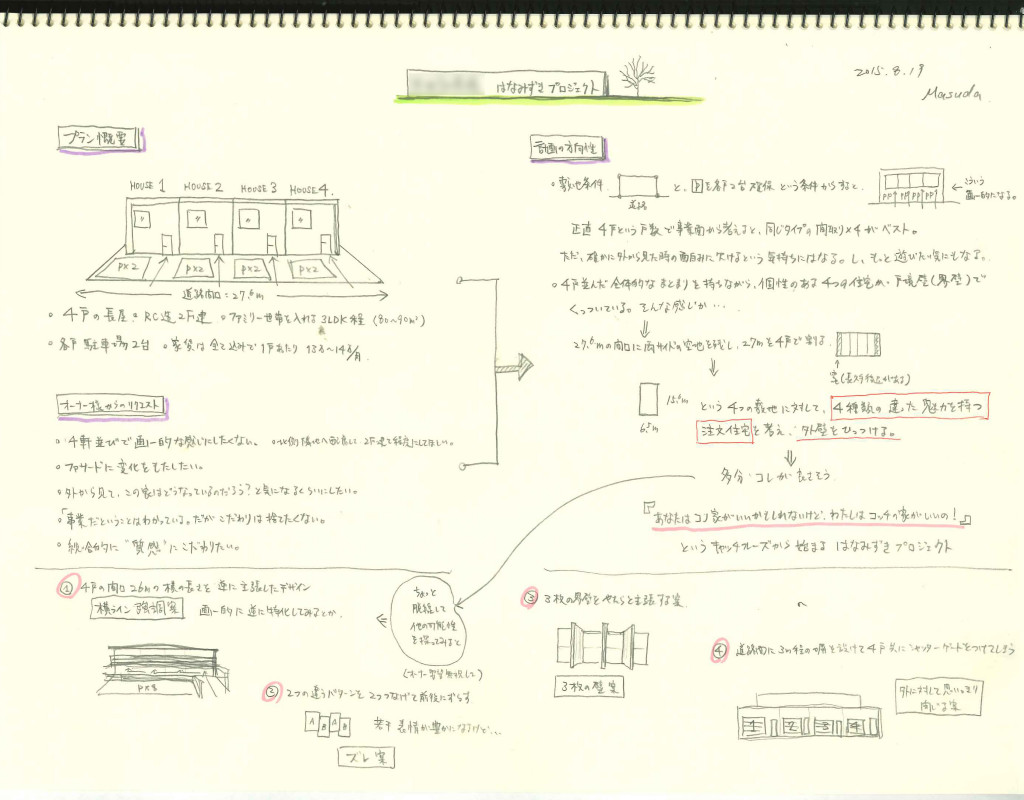 はなみずき プロジェクト
2015.8.19
Masuda
プラン概要
HOUSE 1 HOUSE 2 HOUSE 3 HOUSE 4.
P×2 P×2 P×2 P×2
道路間口:27.6m
・4戸の長屋 ・RC造2F建 ・ファミリー世帯を入れる 3LDK程 (80~90㎡)
・各戸駐車場2台 ・家賃は全て込みで1戸あたり 13万~14万/月
オーナー様からのリクエスト
・4軒並びで画一的な感じにしたくない。 ・北側隣地へ配慮して 2F建て程度にしてほしい。
・ファサードに変化をもたしたい。
・外から見て、この家はどうなっているのだろう?と気になるくらいにしたい。
・「事業だということはわかっている。だがこだわりは捨てたくない。
・統合的に"質感"にこだわりたい。
計画の方向性
・敷地条件
道路
と、Pを各戸2台確保 という条件からすると、
PP PP PP PP
←こういう
画一的になる。
正直 4戸という戸数で事業面から考えると、同じタイプの間取り×4がベスト。
ただ、確かに外から見た時の面白みに欠けるという気持ちにはなる。し、もっと遊びたい気にもなる。
・4戸並んだ全体的なまとまりを持ちながら、個性のある4つの住宅が、戸境壁(界壁)で
くっついている。そんな感じか…
27.6mの間口に両サイドの空地を残し、27mを4戸で割る。
という4つの敷地に対して、4種類の違った魅力を持つ
注文住宅を考え、外壁をひっつける。
多分 コレが良さそう
『あなたはコノ家がいいかもしれないけど、わたしはコッチの家がいいの!』
というキャッチフレーズから始まる はなみずきプロジェクト
ちょっと
脱線して
他の可能性
を探ってみると
① 4戸の間口26mの横の長さを逆に主張したデザイン
横ライン強調案 画一的に逆に特化してみるとか。
P×8
② 2つの違うパターンを2つつなげて前後にずらす
A B A B
若干 表情が豊かになるけど…
ズレ案
③ 3枚の界壁をやたらと主張する案
3枚の壁案
④ 道路面に3m程の塀を設けて4戸共にシャッターゲートをつけてしまう
1 2 3 4
外に対して思いっきり
閉じる案